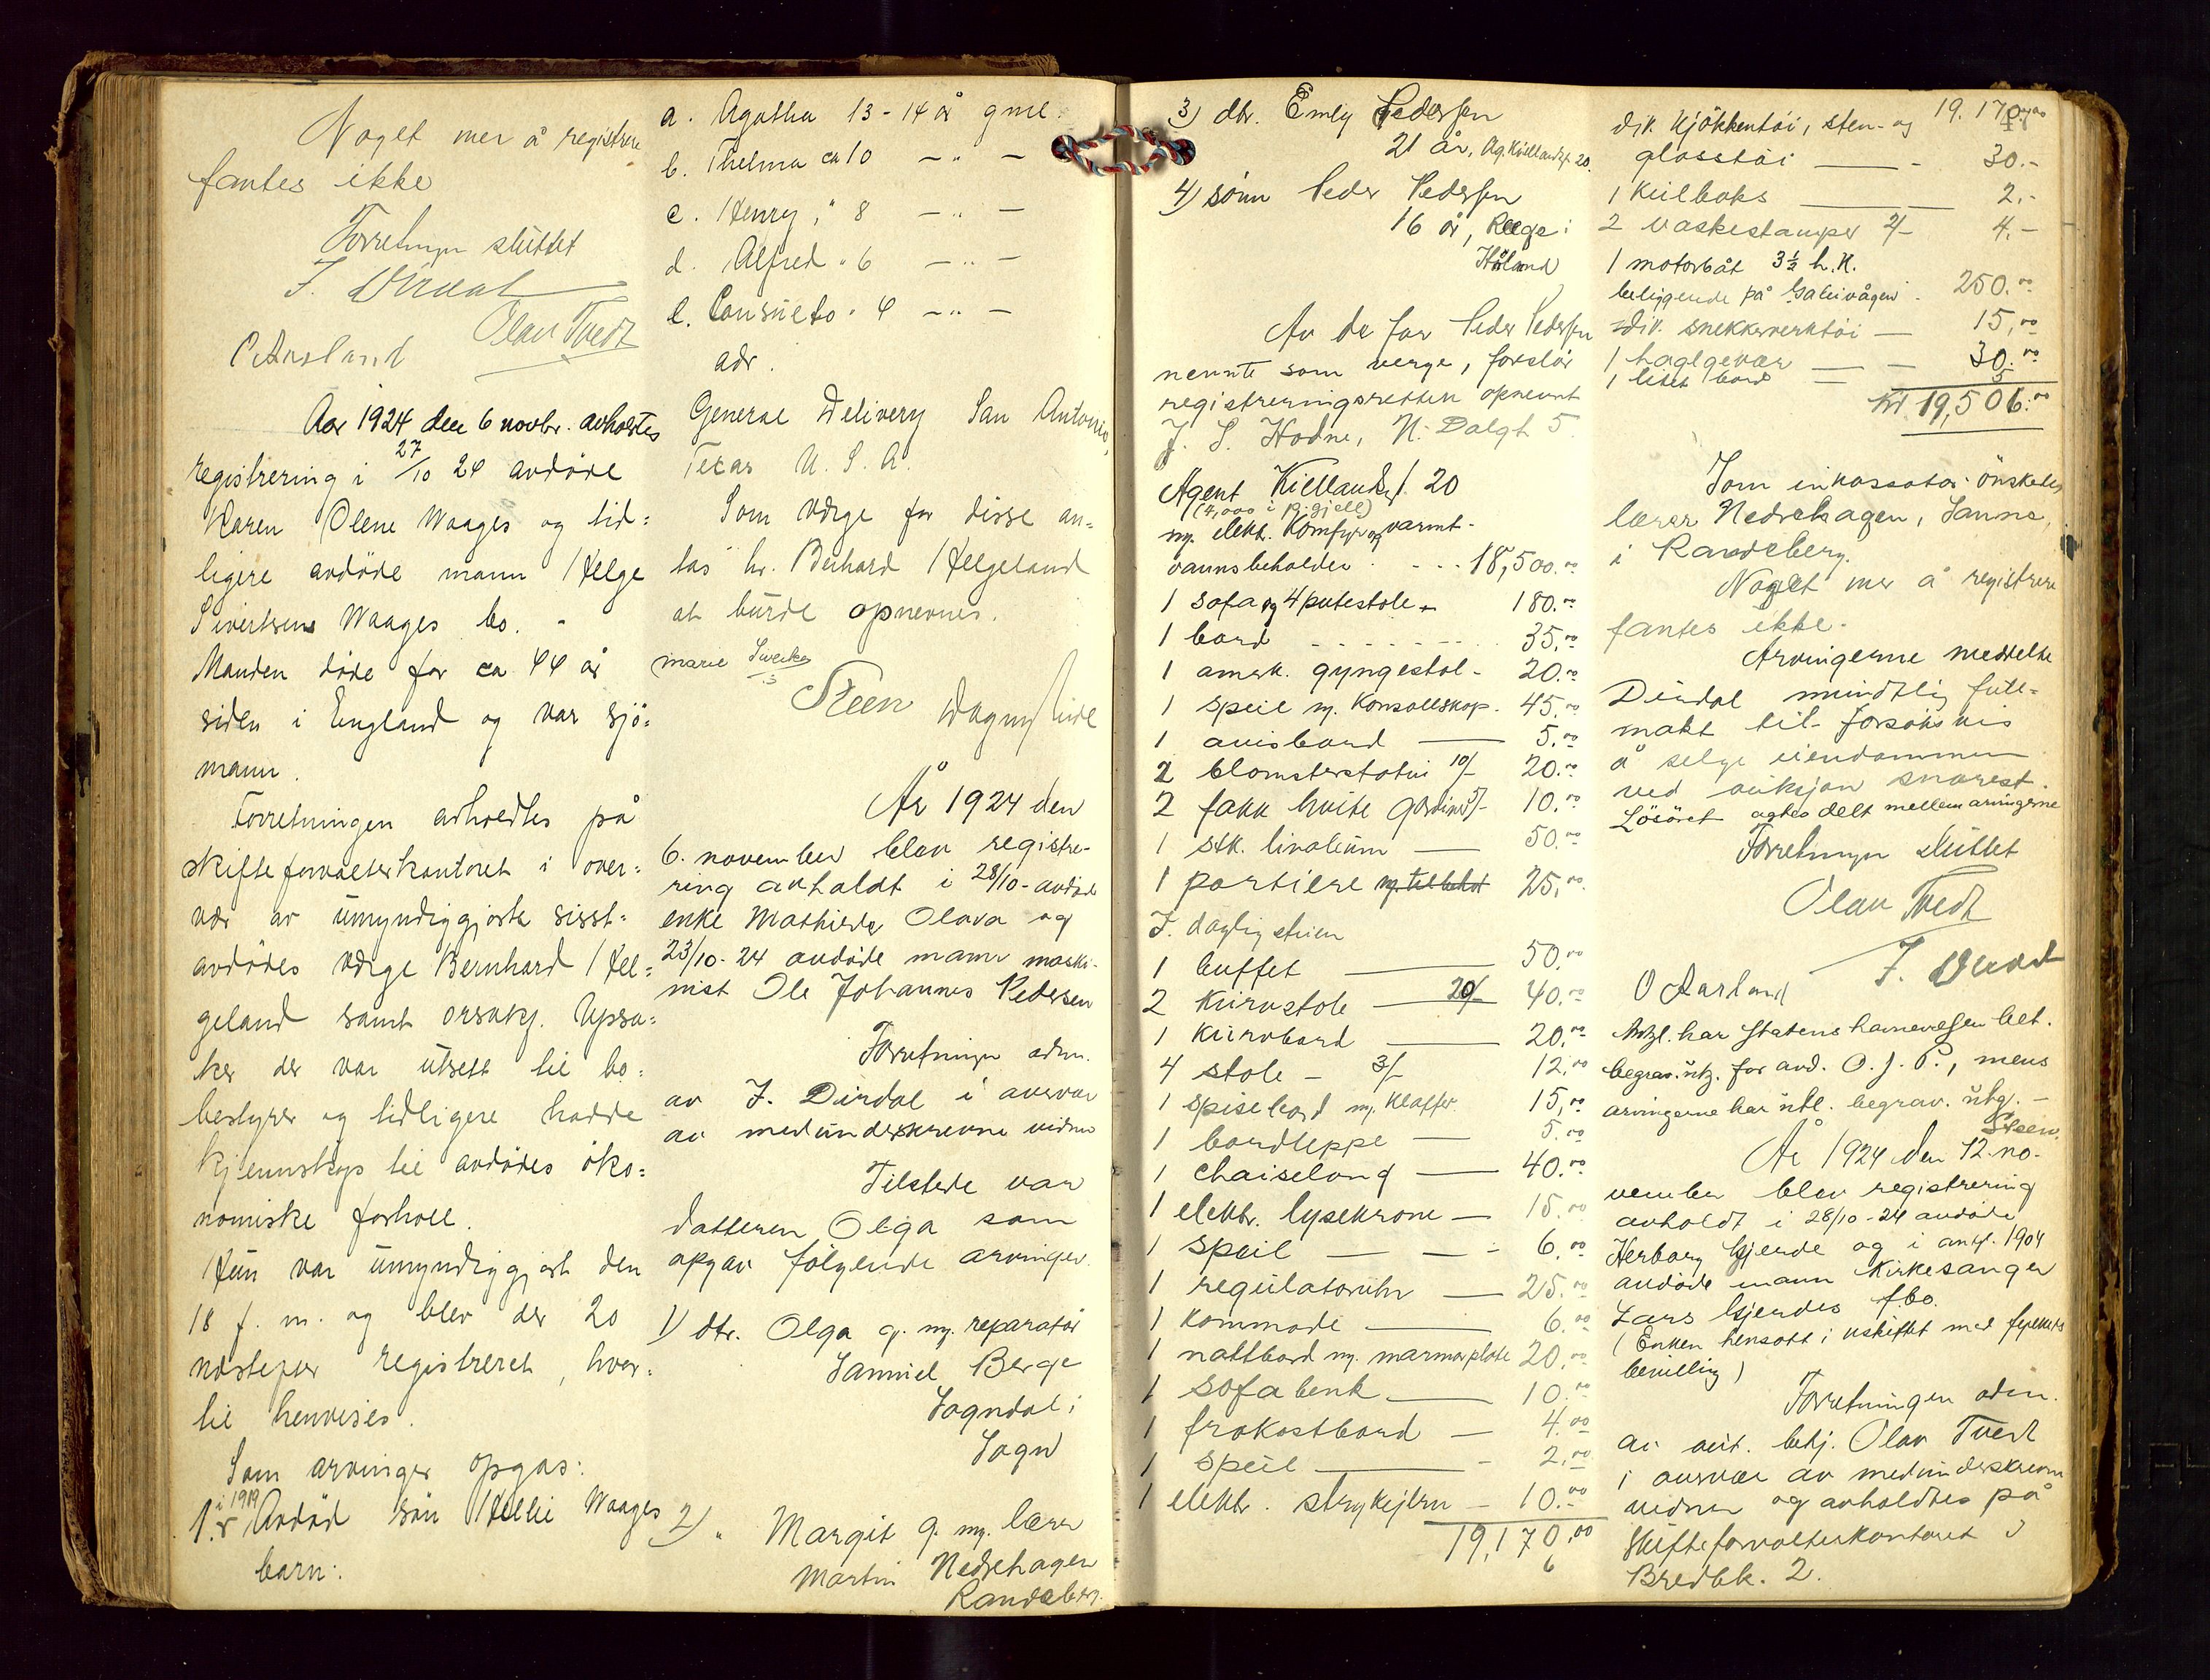 Noget mer å registrere
fantes ikke
Forretningen sluttet
J. Dirdal
Olav Tvedt
O Aarsland
Aar 1924 den 6 novbr. avholdtes
registrering i 27/10 24 avdøde
Karen Olene Waages og tid=
ligere avdøde mann Helge
Sivertsens Waages bo. -
Manden døde for ca 44 år
siden i England og var sjö=
mann.
Forretningen avholdtes på
skifteforvalterkontoret i over=
vær av umyndiggjorte sisst=
avdødes værge Bernhard Hel=
geland samt orsakf. Upsa=
ker der var utsett til bo=
bestyrer og tidligere hadde
kjennskap til avdødes öko=
nomiske forhold.
Hun var umyndiggjort den
18 f. m. og blev der 20
næstefor registreret, hvor=
til henvises.
Som arvinger opgas:
1. i 1919 Avdöd sön Hellie Waages
barn:
a. Agatha 13 - 14 år gml.
b. Thelma ca 10 - " -
c. Henry " 8 - " -
d. Alfred " 6 - " -
e. Consuelo " 4 - " -
adr.
General Delivery San Antonio,
Texas U. S. A.
Som værge for disse an=
tas hr. Bernhard Helgeland
at burde opnevnes.
Marie
Steen Dagny
År 1924 den
6. november blev registre-
ring avholdt i 28/10- avdøde
enke Mathilde Olava og
23/10-24 avdøde mann maski-
nist Ole Johannes Pedersen
Forretningen adm.
av J. Dirdal i avsvar
av medunderskrevne vidner
Tilstede var
datteren Olga som
opgav følgende arvinger.
1) dtr. Olga g. m. reparatør
Samuel Berge
Sogndal i
Sogn
2) " Margit g. m. lærer
Martin Nedrehagen
Randeberg.
3) dtr. Emly Pedersen
21 år, Ag. Kiellandsgt 20.
4) sönn Peder Pedersen
16 år, Rege i
Håland
Av de før Peder Pedersen
nevnte som verge, foreslår
registreringsretten opnevnt
J. S. Hodne, N. Dalgt 5.
Agent Kiellandsgt. 20
(4,000 i p. gjeld)
m. elektr. Komfyr og varmt-
vannsbeholder . . . . 18,500.00
1 sofa og 4 putestole - 180.00
1 bord . . . . . . 35.00
1 amrk. gyngestol - 20.00
1 speil m. Konsollskap - 45.00
1 avisbord — 5.00
2 blomsterstativ 10/- 20.00
2 fakk hvite gardiner 5/- 10.00
1 stk. linolium — 50.00
1 portiere m. tilbehør 25.00
I daglig stuen
1 buffet — 50.00
2 Kurvstole — 20/- 40.00
1 Kurvbord — 20.00
4 stole - 3/- 12.00
1 spisebord m. Klaffer 15.00
1 bordteppe — 5.00
1 chaiselong — 40.00
1 elektr. lysekrone — 15.00
1 speil — — - 6.00
1 regulatoruhr — 25.00
1 kommode — 6.00
1 nattbord m. marmorplate 20.00
1 sofabenk — 10.00
1 frokostbord — 4.00
1 speil — - 2.00
1 elektr. strykejern - 10.00
19,170.00
6
19.170.00
div. kjökkentöi, sten- og
glasstöi — - 30.-
1 Kulboks — 2.-
2 vaskestamper 2/- 4.-
1 motorbåt 3½ h.K.
beliggende på Galeivågen - 250.00
div. snekkerverktöi — 15.00
1 haglgevær — - 30.00
1 litet bord = 5
Kr 19,506.00
Som inkassator önskedes
lærer Nedrehagen, Sanne,
i Randeberg.
Noget mer å registrere
fantes ikke.
Arvingerne meddelte
Dirdal mundtlig full=
makt til forsøksvis
å selge eiendommen
ved auksjon snarest.
Lösöret agtes delt mellem arvingerne
Forretningen sluttet
Olav Tvedt
J. Dirdal
O Aarsland
har Statens havnevesen bet.
begrav. utg. for avd. O. J. P., mens
arvingerne har utl. begrav. utg. -
Steen.
År 1924 den 12. no-
vember blev registrering
avholdt i 28/10-24 avdøde
Herborg Gjerde og i aug. 1904
avdøde mann Kirkesanger
Lars Gjerdes f.bo.
(Enken hensatt i uskiftet med
bevilling)
Forretningen adm.
av aut. betj. Olav Tvedt
i avsvar av medunderskrevne
vidner og avholdtes på
Skifteforvalterkontoret
Bredbk. 2.